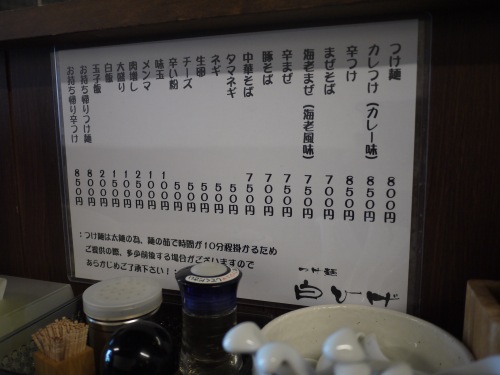 つけ麺 800円
カレつけ（カレー味） 850円
辛つけ 850円
まぜそば 700円
海老まぜ（海老風味） 750円
辛まぜ 750円
豚そば 750円
中華そば 750円
タマネギ 50円
ネギ 50円
生卵 50円
チーズ 50円
辛い粉 50円
味玉 100円
メンマ 100円
肉増し 200円
大盛り 100円
白飯 100円
玉子飯 200円
お持ち帰りつけ麺 800円
お持ち帰り辛つけ 850円
：つけ麺は太麺の為、麺の茹で時間が10分程掛かるため
ご提供の際、多少前後する場合がございますので
あらかじめご了承下さい！：
つけ麺
白ひげ